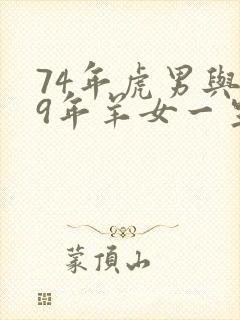 74年虎男與
9年羊女一
蒙頂山